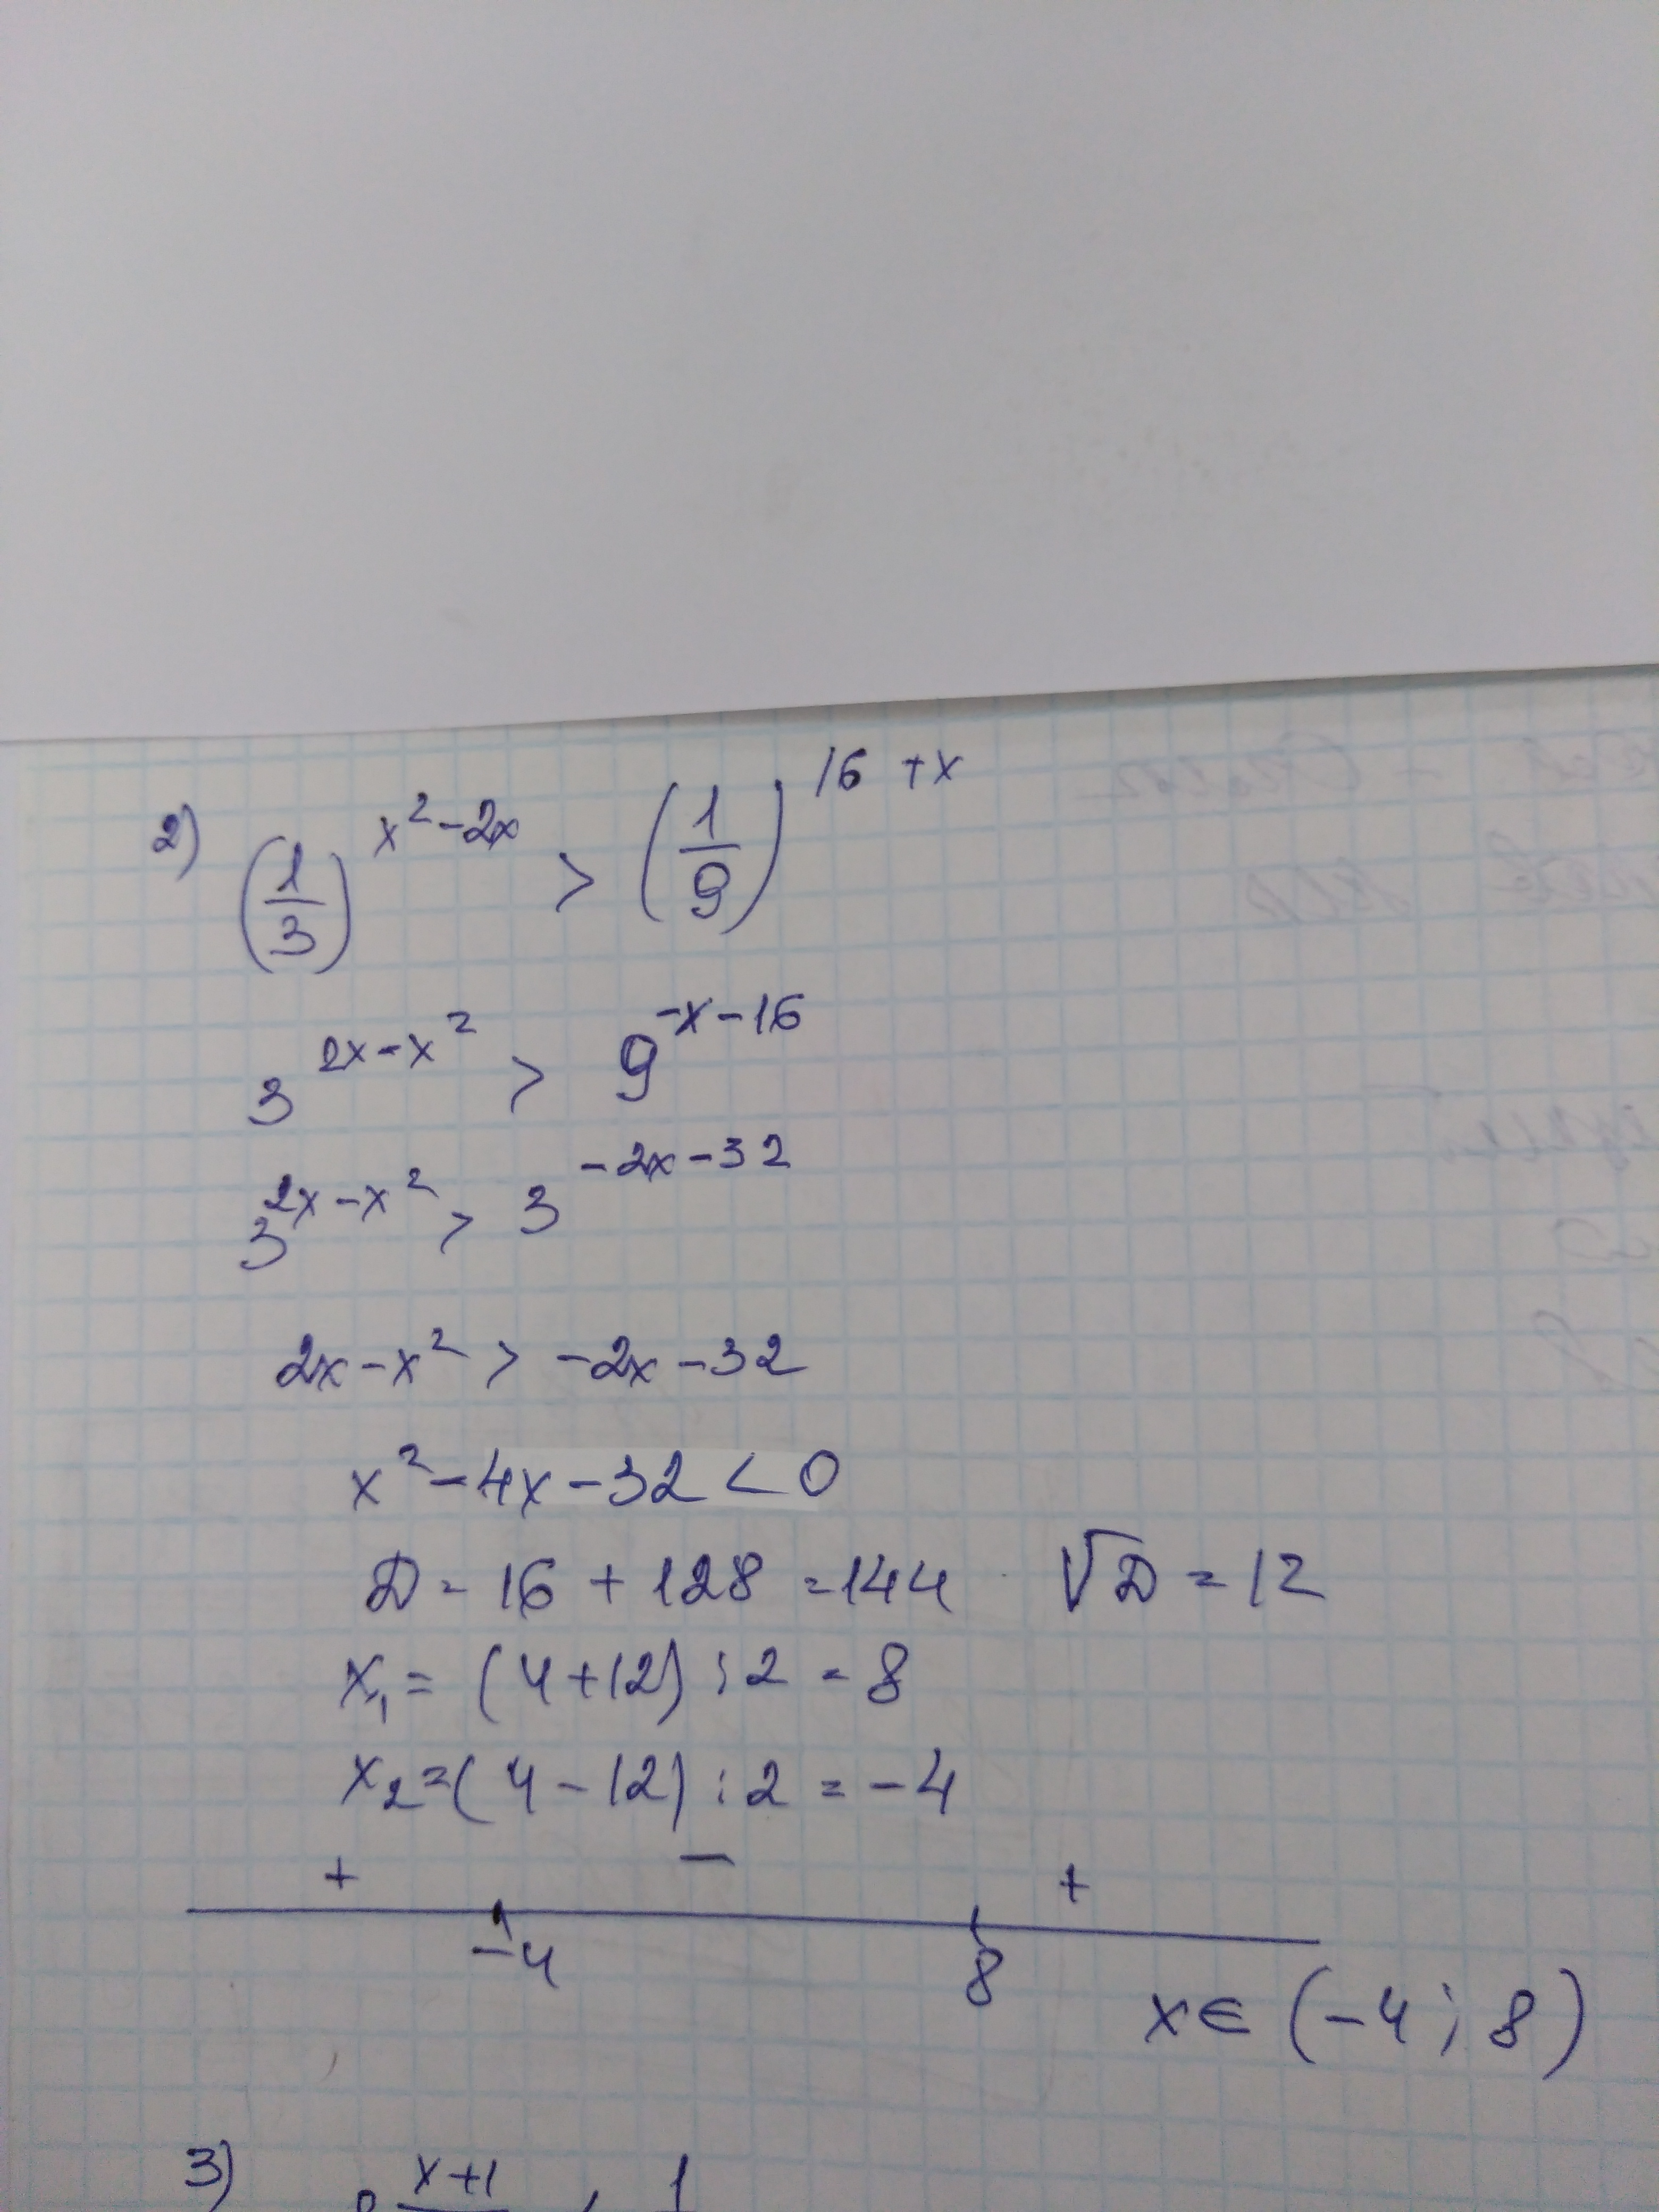 2) (1/3)^(x²-2x) > (1/9)^(16+x)
3^(2x-x²) > 9^(-x-16)
3^(2x-x²) > 3^(-2x-32)
2x-x² > -2x-32
x²-4x-32<0
D=16+128=144 √D=12
x₁=(4+12):2=8
x₂=(4-12):2=-4
+ - +
-4 8
x∈(-4;8)
3) x+1 1